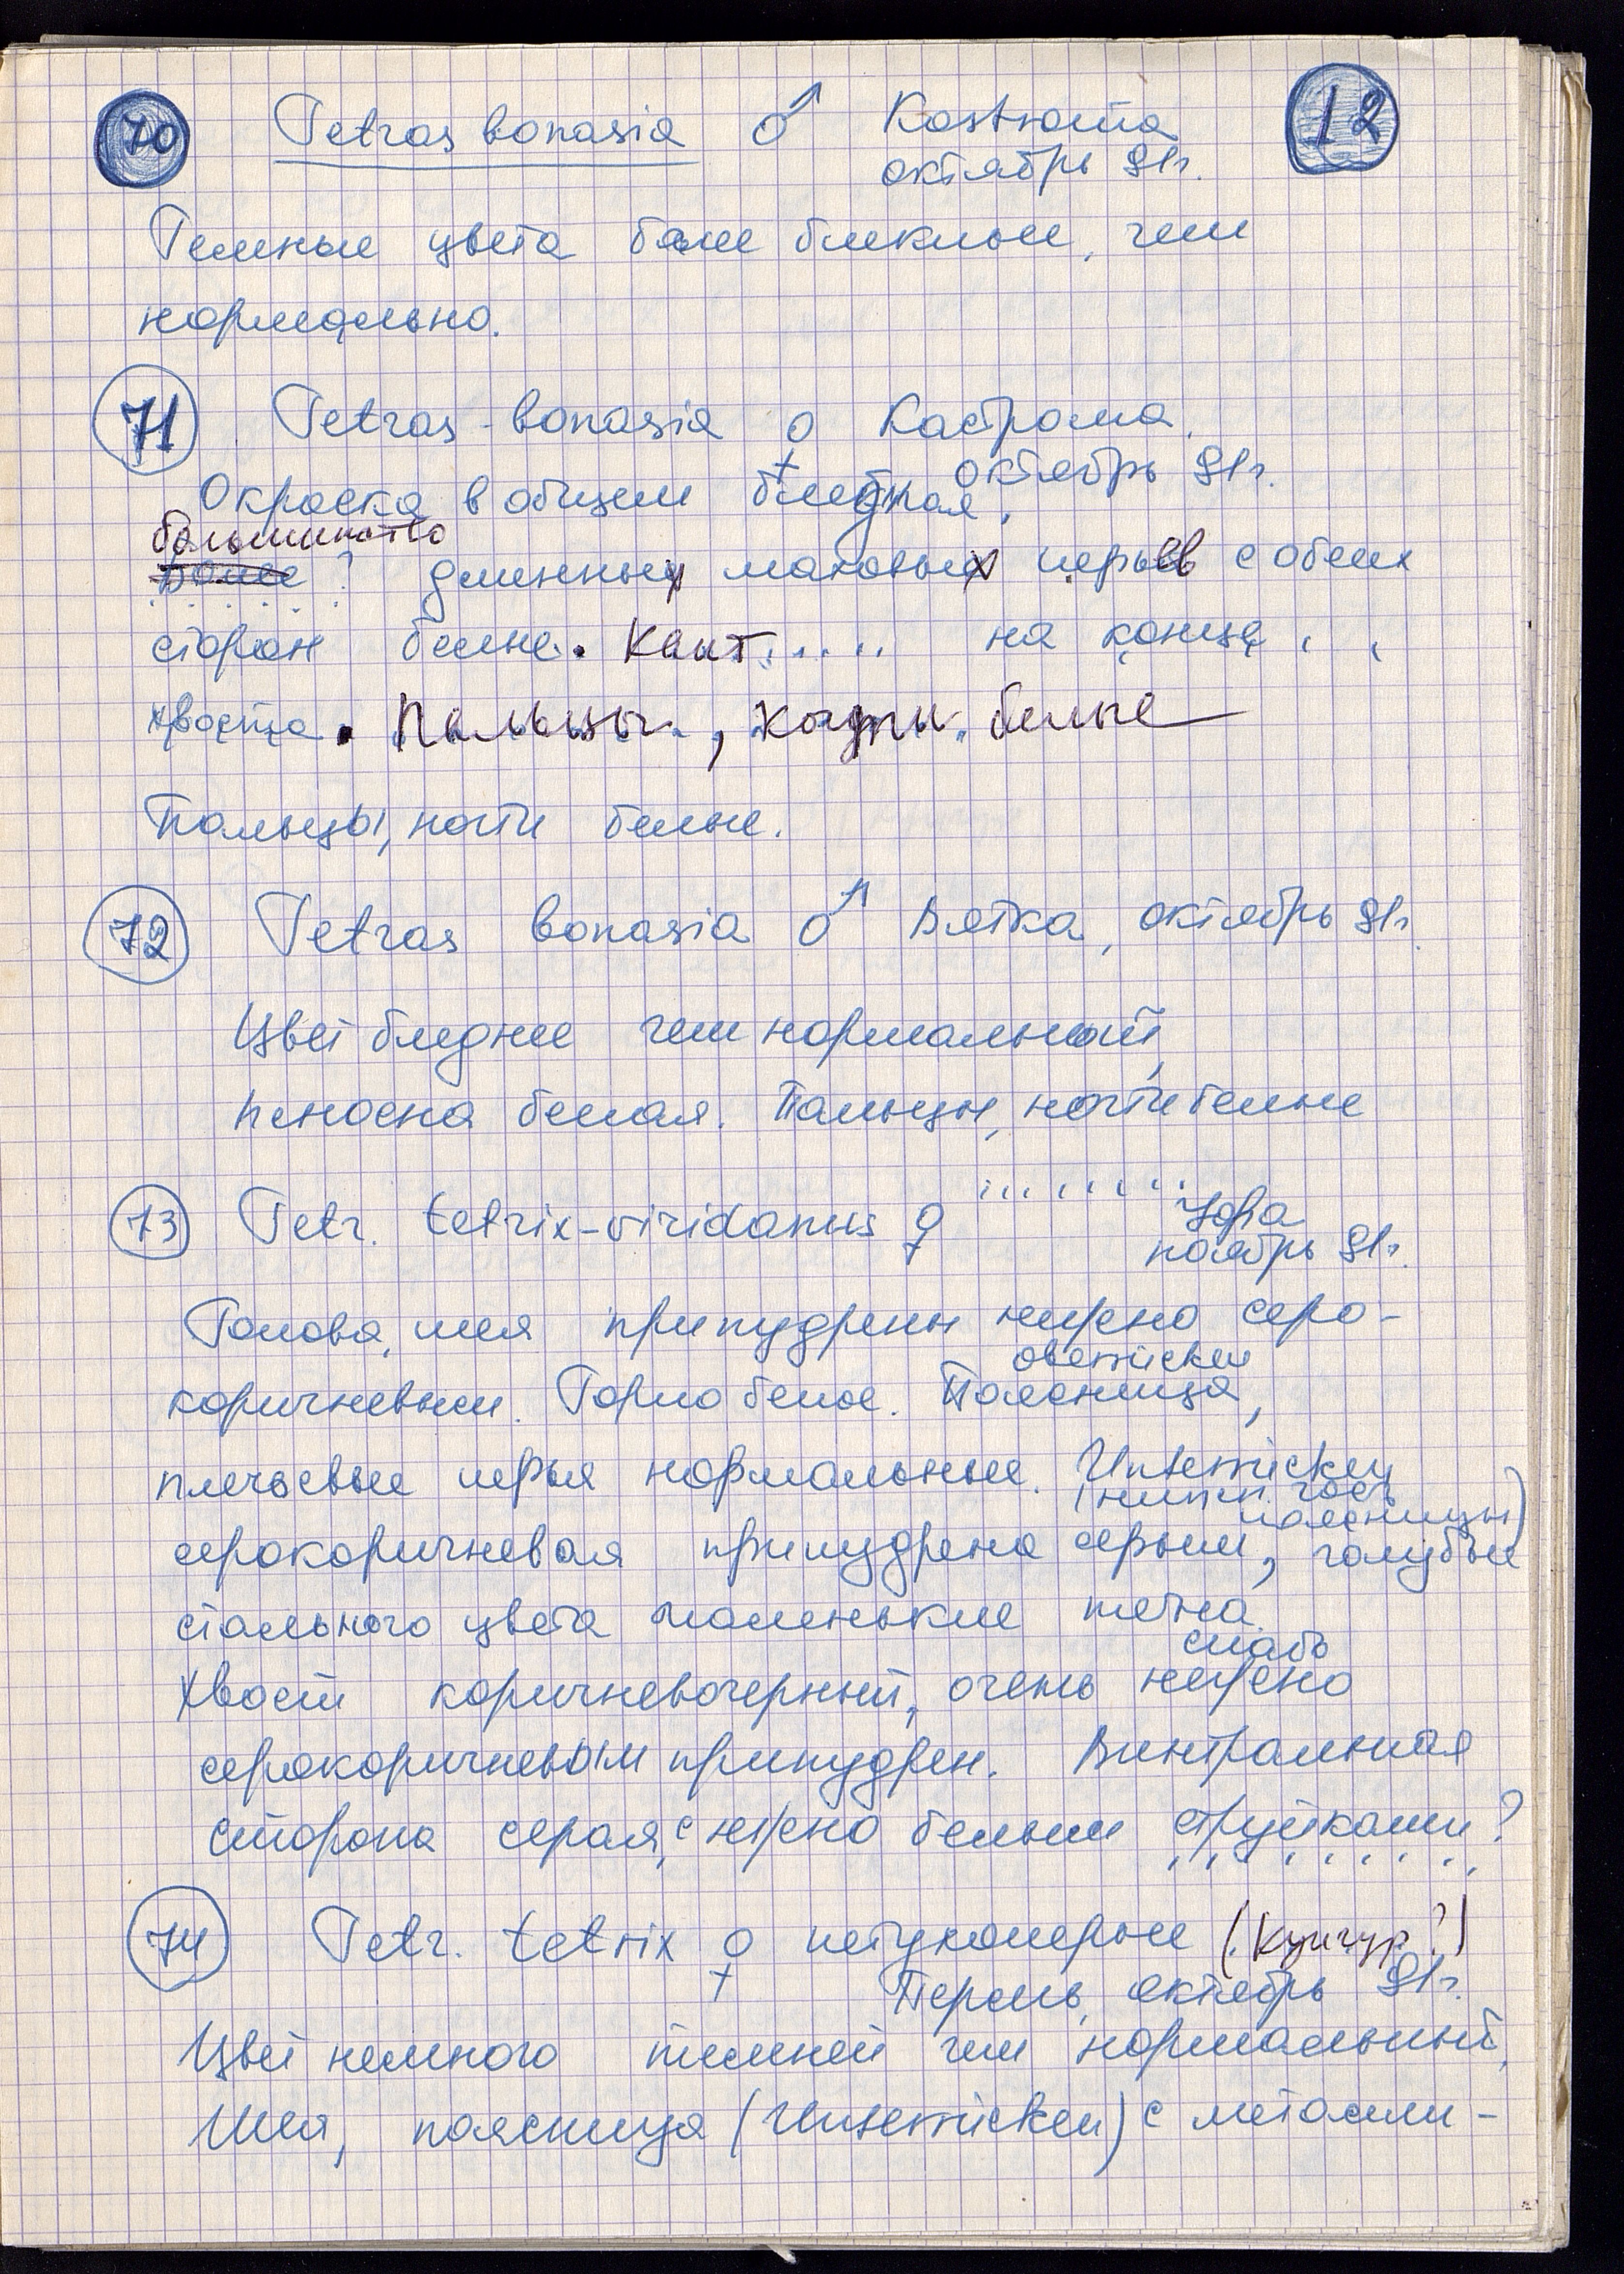 70 Tetras bonasia ♂ Kostroma 12
октябрь 91г.
Темные цвета более блеклые, чем
нормально.
71 Tetras-bonasia ♀ Кострома.
октябрь 91г.
Окраска в общем бледная,
большинство
Более ? длинных маховых перьев с обеих
сторон белые. Кант..... на конце
хвоста. Пальцы, когти белые
Пальцы, ногти белые.
72 Tetras bonasia ♂ Вятка, октябрь 91г.
Цвет бледнее чем нормальный,
белая. Пальцы, ногти белые
73 Tetr. tetrix-viridanus ♀ .........
Уфа
ноябрь 91г.
Голова, шея припудрены нежно серо-
коричневым. Горло белое. Поясница,
плечевые перья нормальные. Unterrücken
(нижн. часть
поясницы)
серокоричневая припудрена серым, голубые
стального цвета маленькие пятна
слабо
Хвост коричневочерный, очень нежно
серокоричневым припудрен. Вентральная
сторона серая, с нежно белыми струйками?
74 Tetr. tetrix ♀ петухоперые (Кунгур?)
Пермь, октябрь 91г.
Цвет немного темней чем нормальный,
Шея, поясница (Unterrücken) с металли-